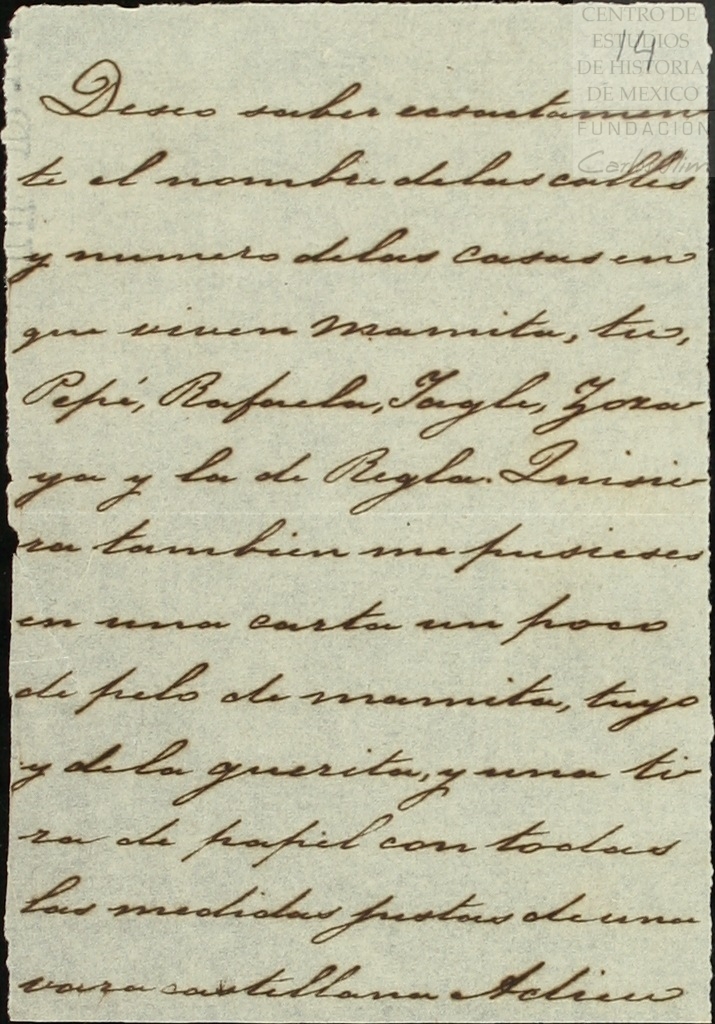 CENTRO DE
ESTUDIOS
DE HISTORIA
DE MEXICO
FUNDACIÓN
14
Deseo saber ecsactamen
te el nombre de las calles
y numero de las casas en
que viven Mamita, tu,
Pepé, Rafaela, Tagle, Zora
ya y la de Regla. Quisie
ra tambien me pusieses
en una carta un poco
de pelo de mamita, tuyo
y de la guerita, y una ti
ra de papel con todas
las medidas justas de una
vara castellana Adieu